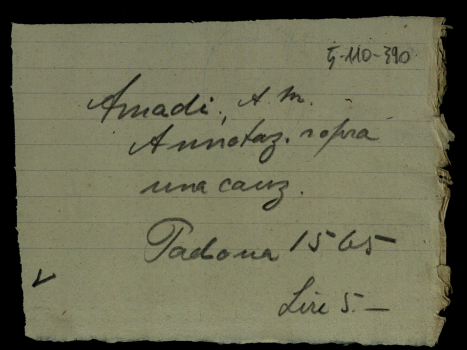 G-110-390
Amadi, A. M.
Annotaz. sopra
una canz.
Padova 1565
Lire 5.—